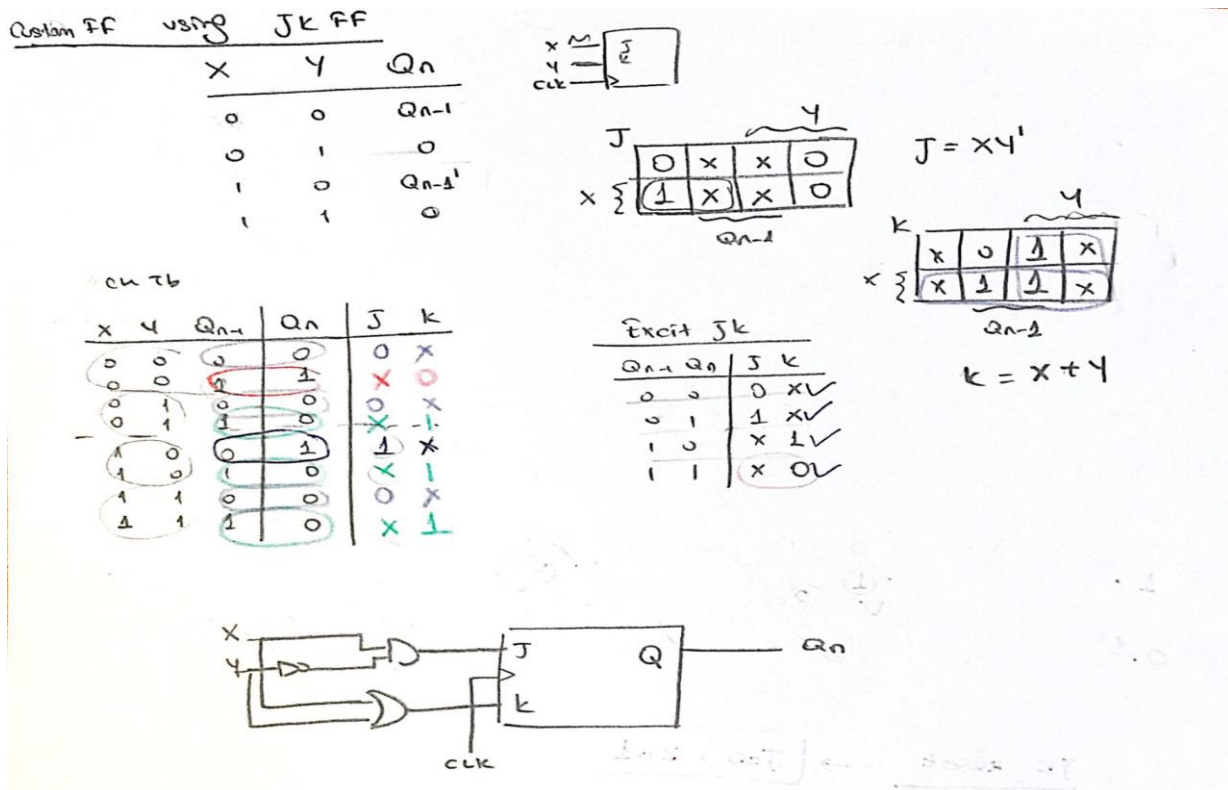 Custom FF using JK FF
X Y Qn
0 0 Qn-1
0 1 0
1 0 Qn-1'
1 1 0
X
Y
CLK
J
K
J
Y
0 x x 0
X { 1 x x 0
Qn-1
J = XY'
K
Y
x 0 1 x
X { x 1 1 x
Qn-1
K = X + Y
CH Tb
X Y Qn-1 Qn J K
0 0 0 0 0 X
0 0 1 1 X 0
0 1 0 0 0 X
0 1 1 0 X 1
1 0 0 1 1 X
1 0 1 0 X 1
1 1 0 0 0 X
1 1 1 0 X 1
Excit JK
Qn-1 Qn J K
0 0 0 X✓
0 1 1 X✓
1 0 X 1✓
1 1 X 0✓
X
Y
J Q Qn
K
CLK